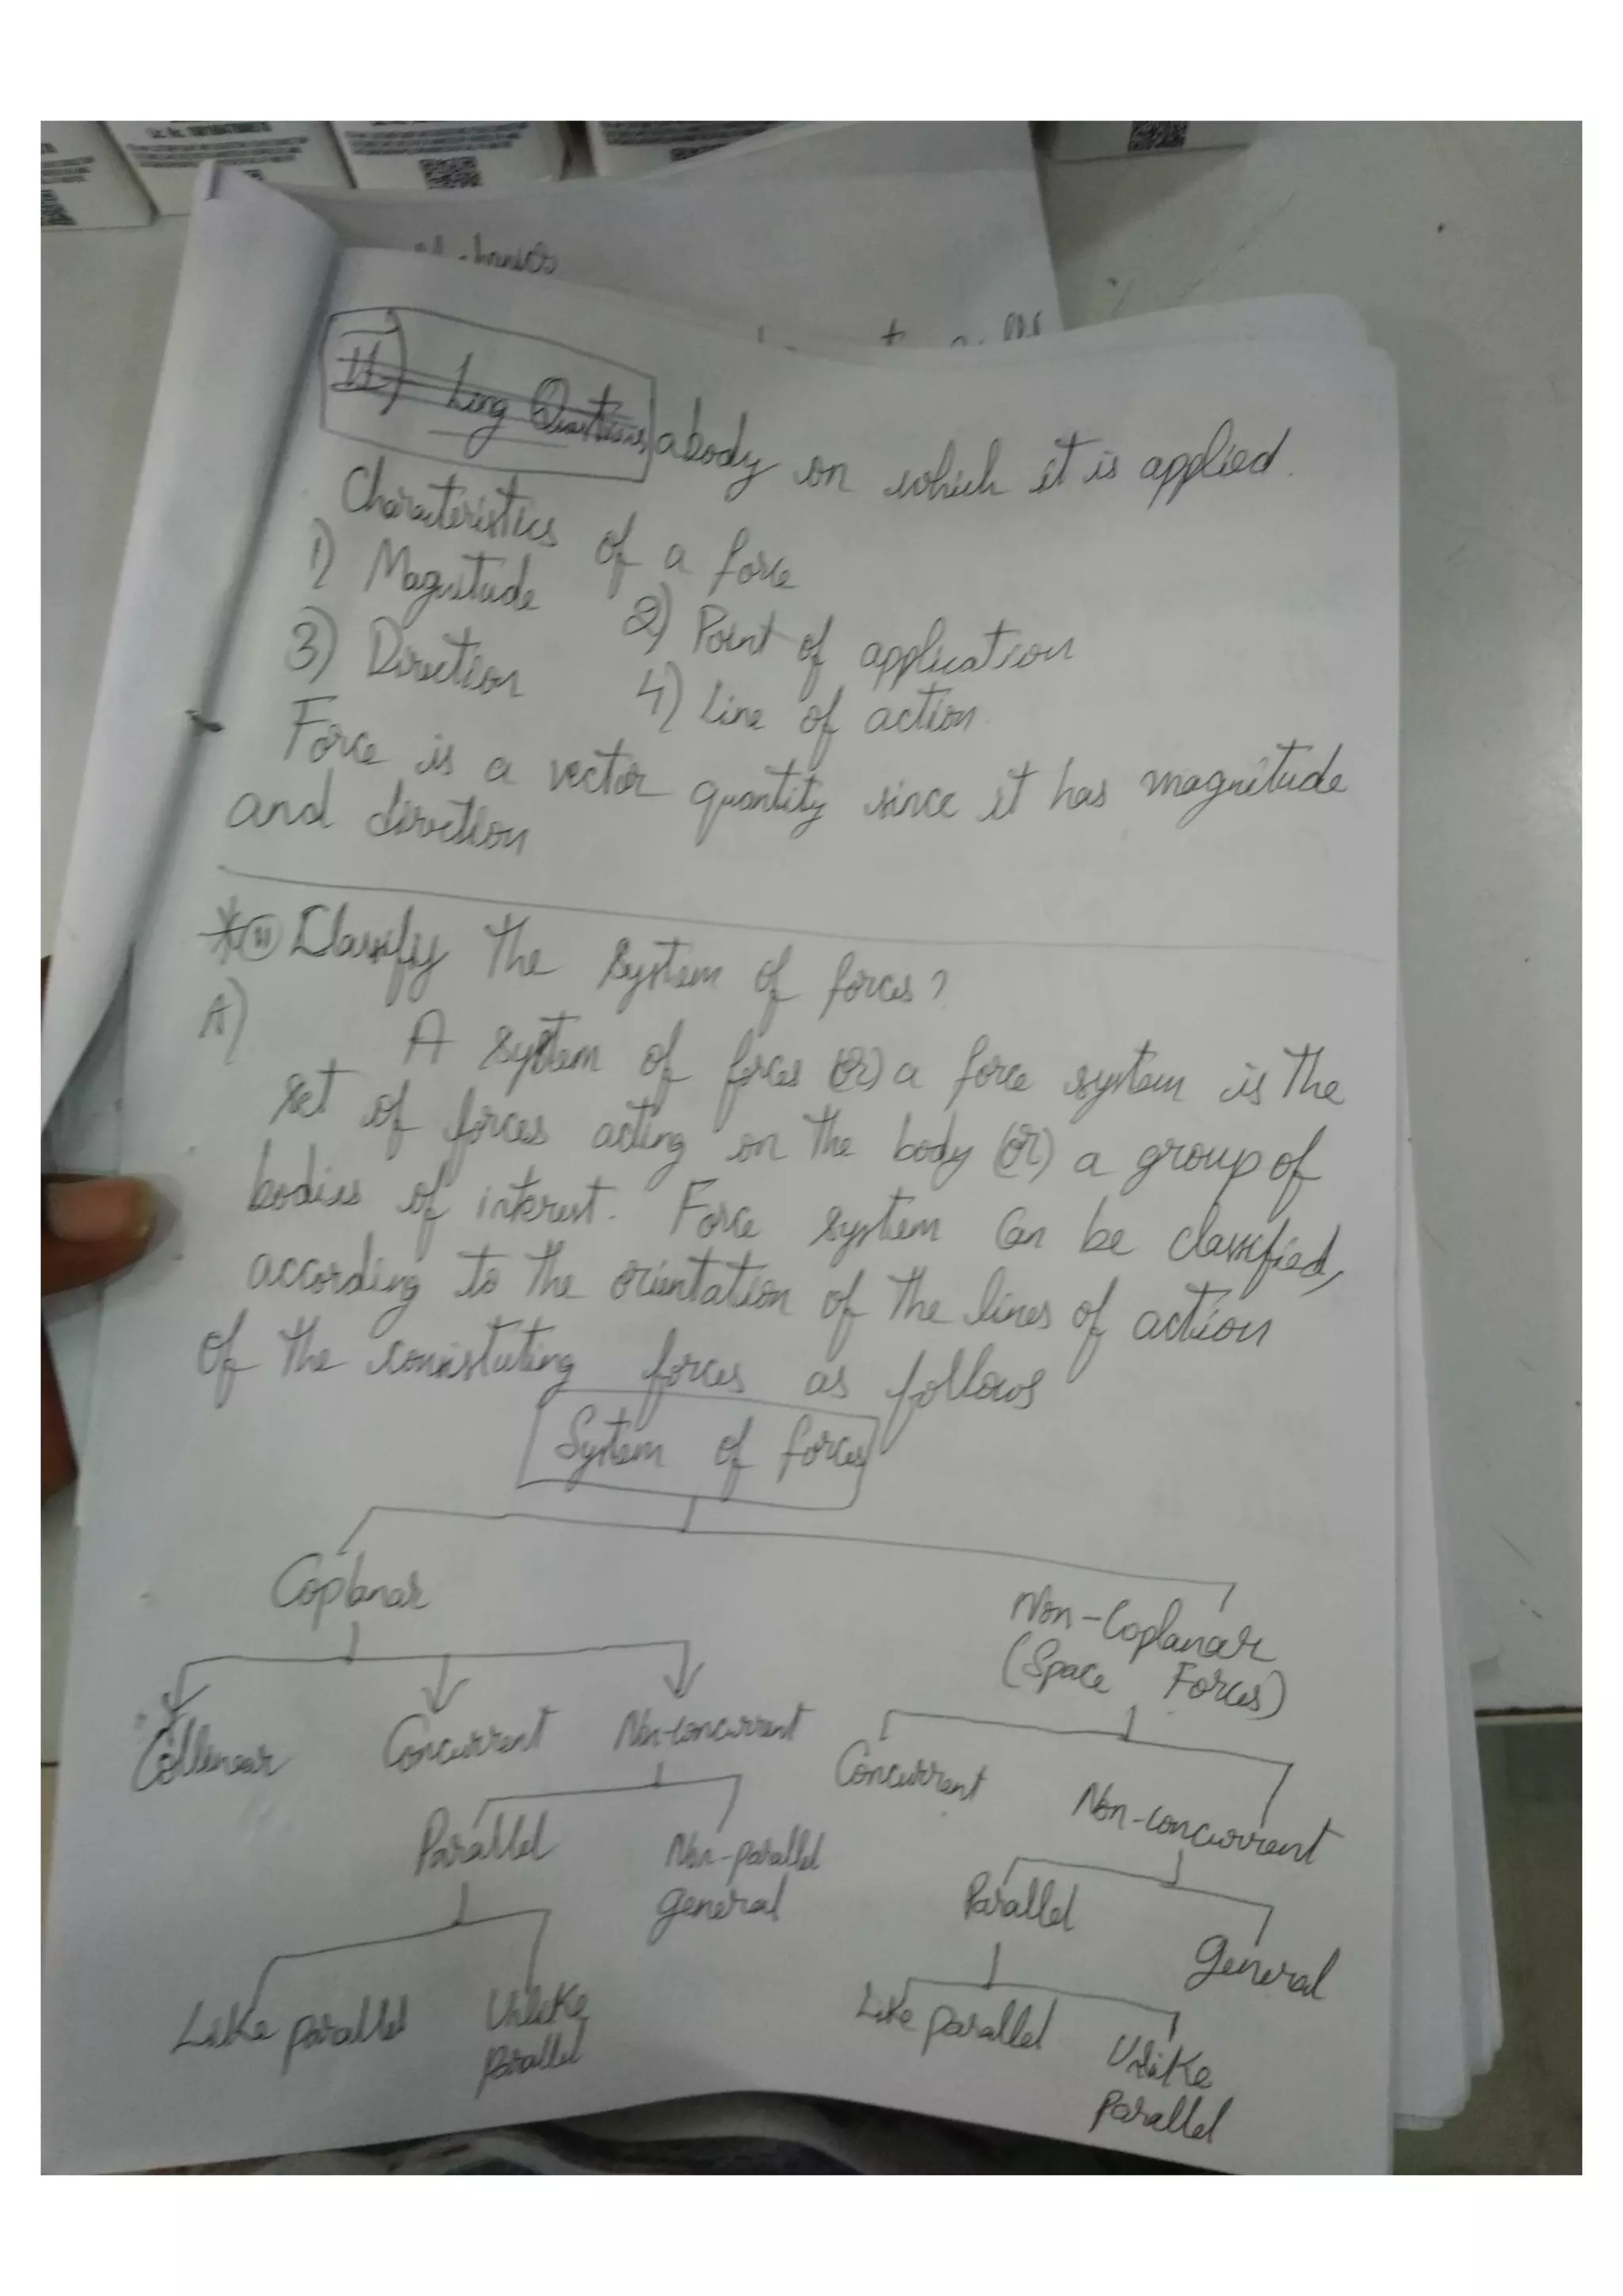 II) Long Questions a body on which it is applied.
Characteristics of a force
1) Magnitude 2) Point of application
3) Direction 4) Line of action.
Force is a vector quantity since it has magnitude
and direction
* 11 Classify the system of forces?
A) A system of forces (or) a force system is the
set of forces acting on the body (or) a group of
bodies of interest. Force system can be classified,
according to the orientation of the lines of action
of the constituting forces as follows
System of forces
Coplanar
Non-Coplanar
(Space Forces)
Collinear Concurrent Non-concurrent
Concurrent Non-concurrent
Parallel Non-parallel
general
Parallel General
Like parallel Unlike
parallel
Like parallel Unlike
parallel